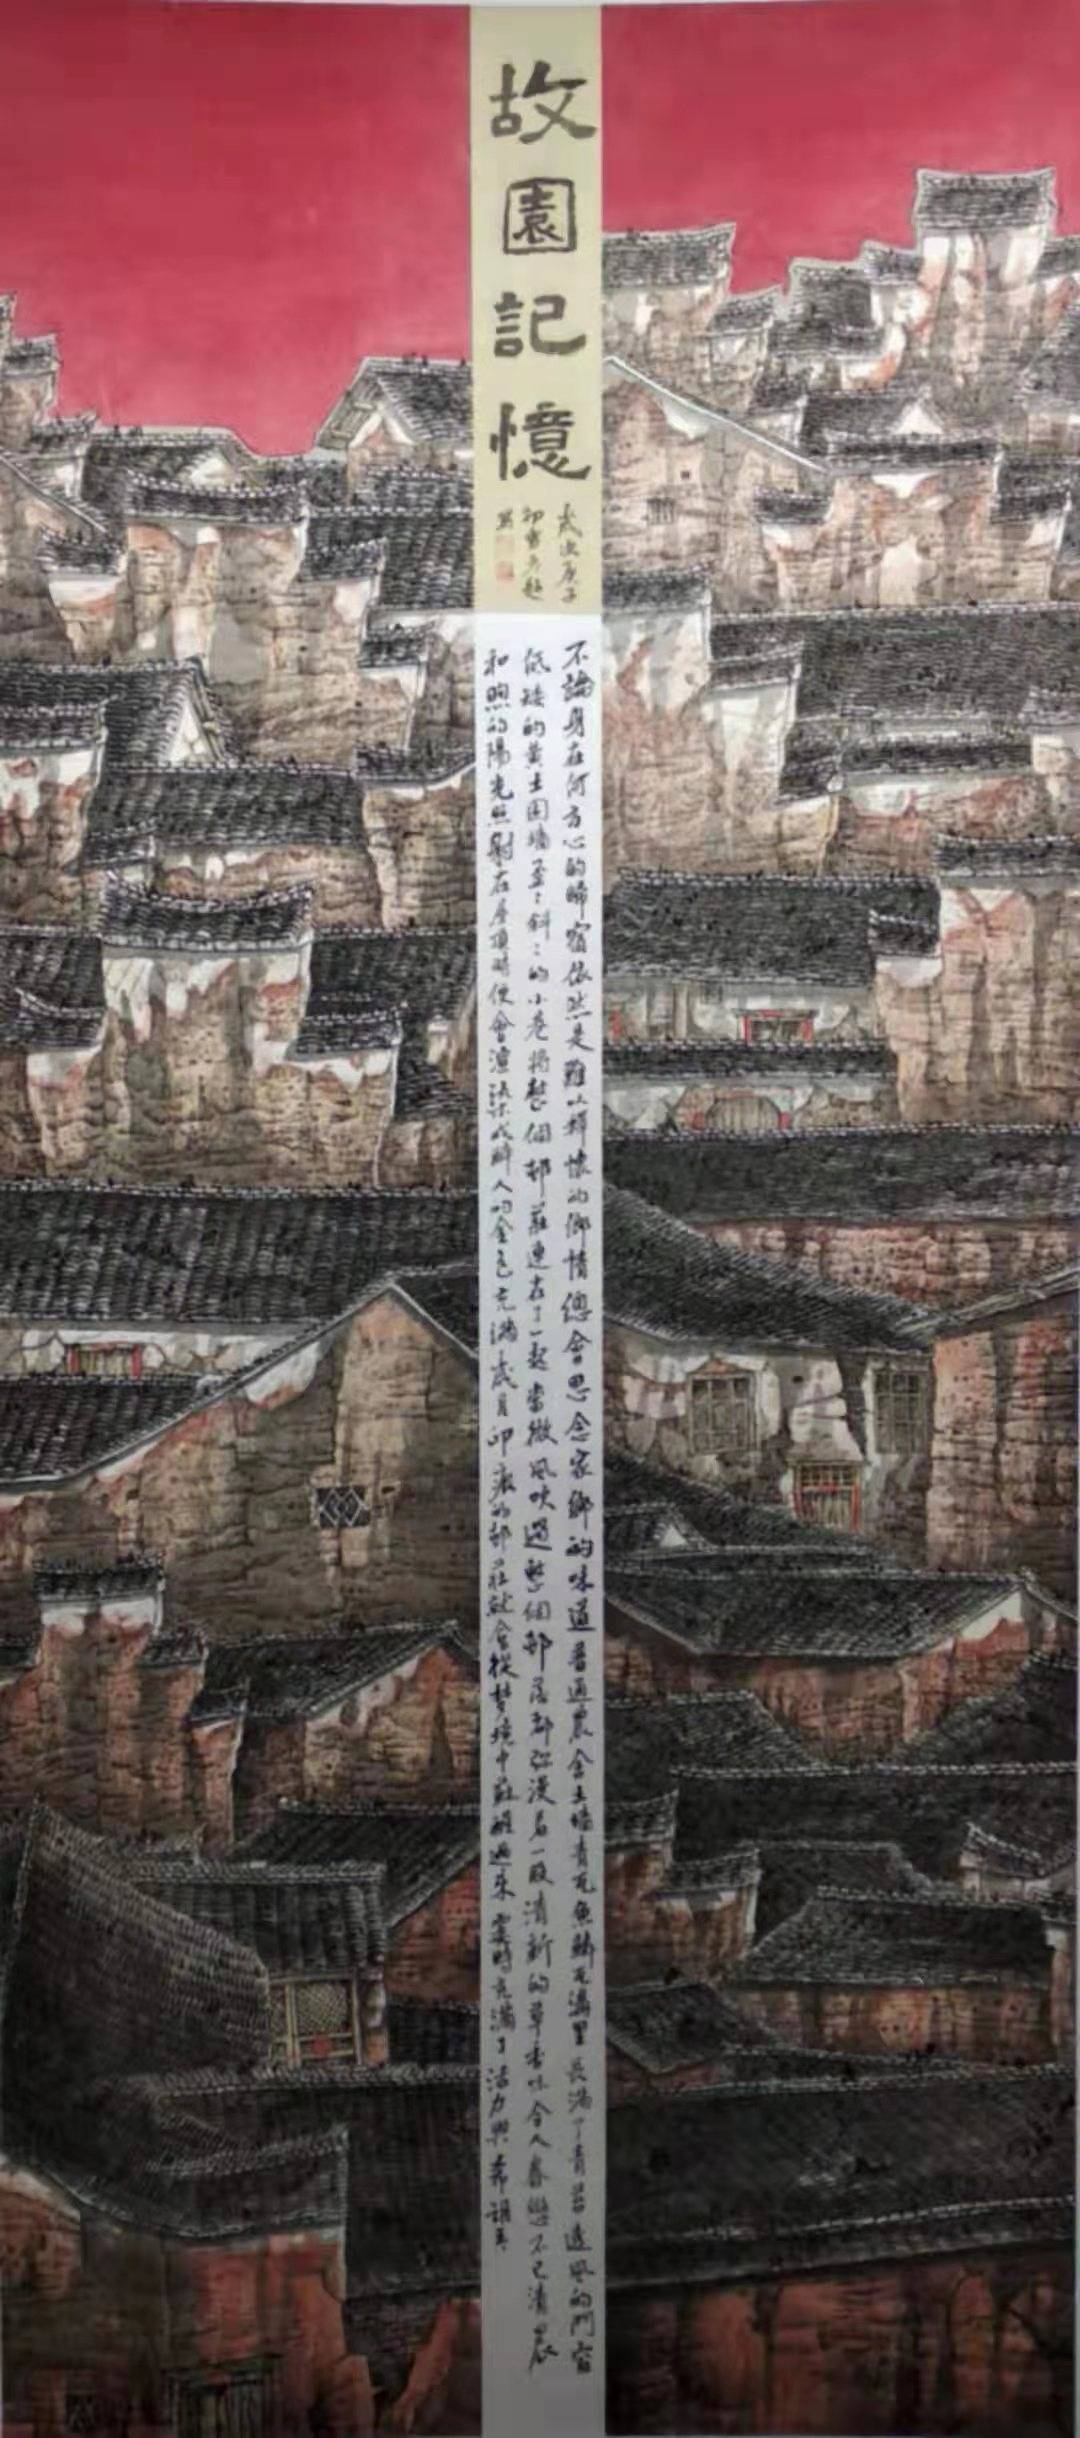 故園記憶
歲次庚子
不論身在何方心的歸宿依然是難以釋懷的鄉情總會思念家鄉的味道普通農舍土墻青瓦魚鱗瓦溝里長滿了青苔透風的門窗
低矮的黄土围墙歪歪斜斜的小巷將整個邨莊連在了一起當微風吹過整個邨落都弥漫着一股清新的草香味令人眷戀不已清晨
和煦的陽光照射在屋頂时便會渲染成醉人的金色充满歲月印痕的邨莊就会從梦境中甦醒過来霎時充满了活力與希望